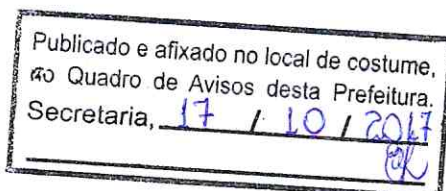 Publicado e afixado no local de costume,
no Quadro de Avisos desta Prefeitura.
Secretaria, 17 / 10 / 2017